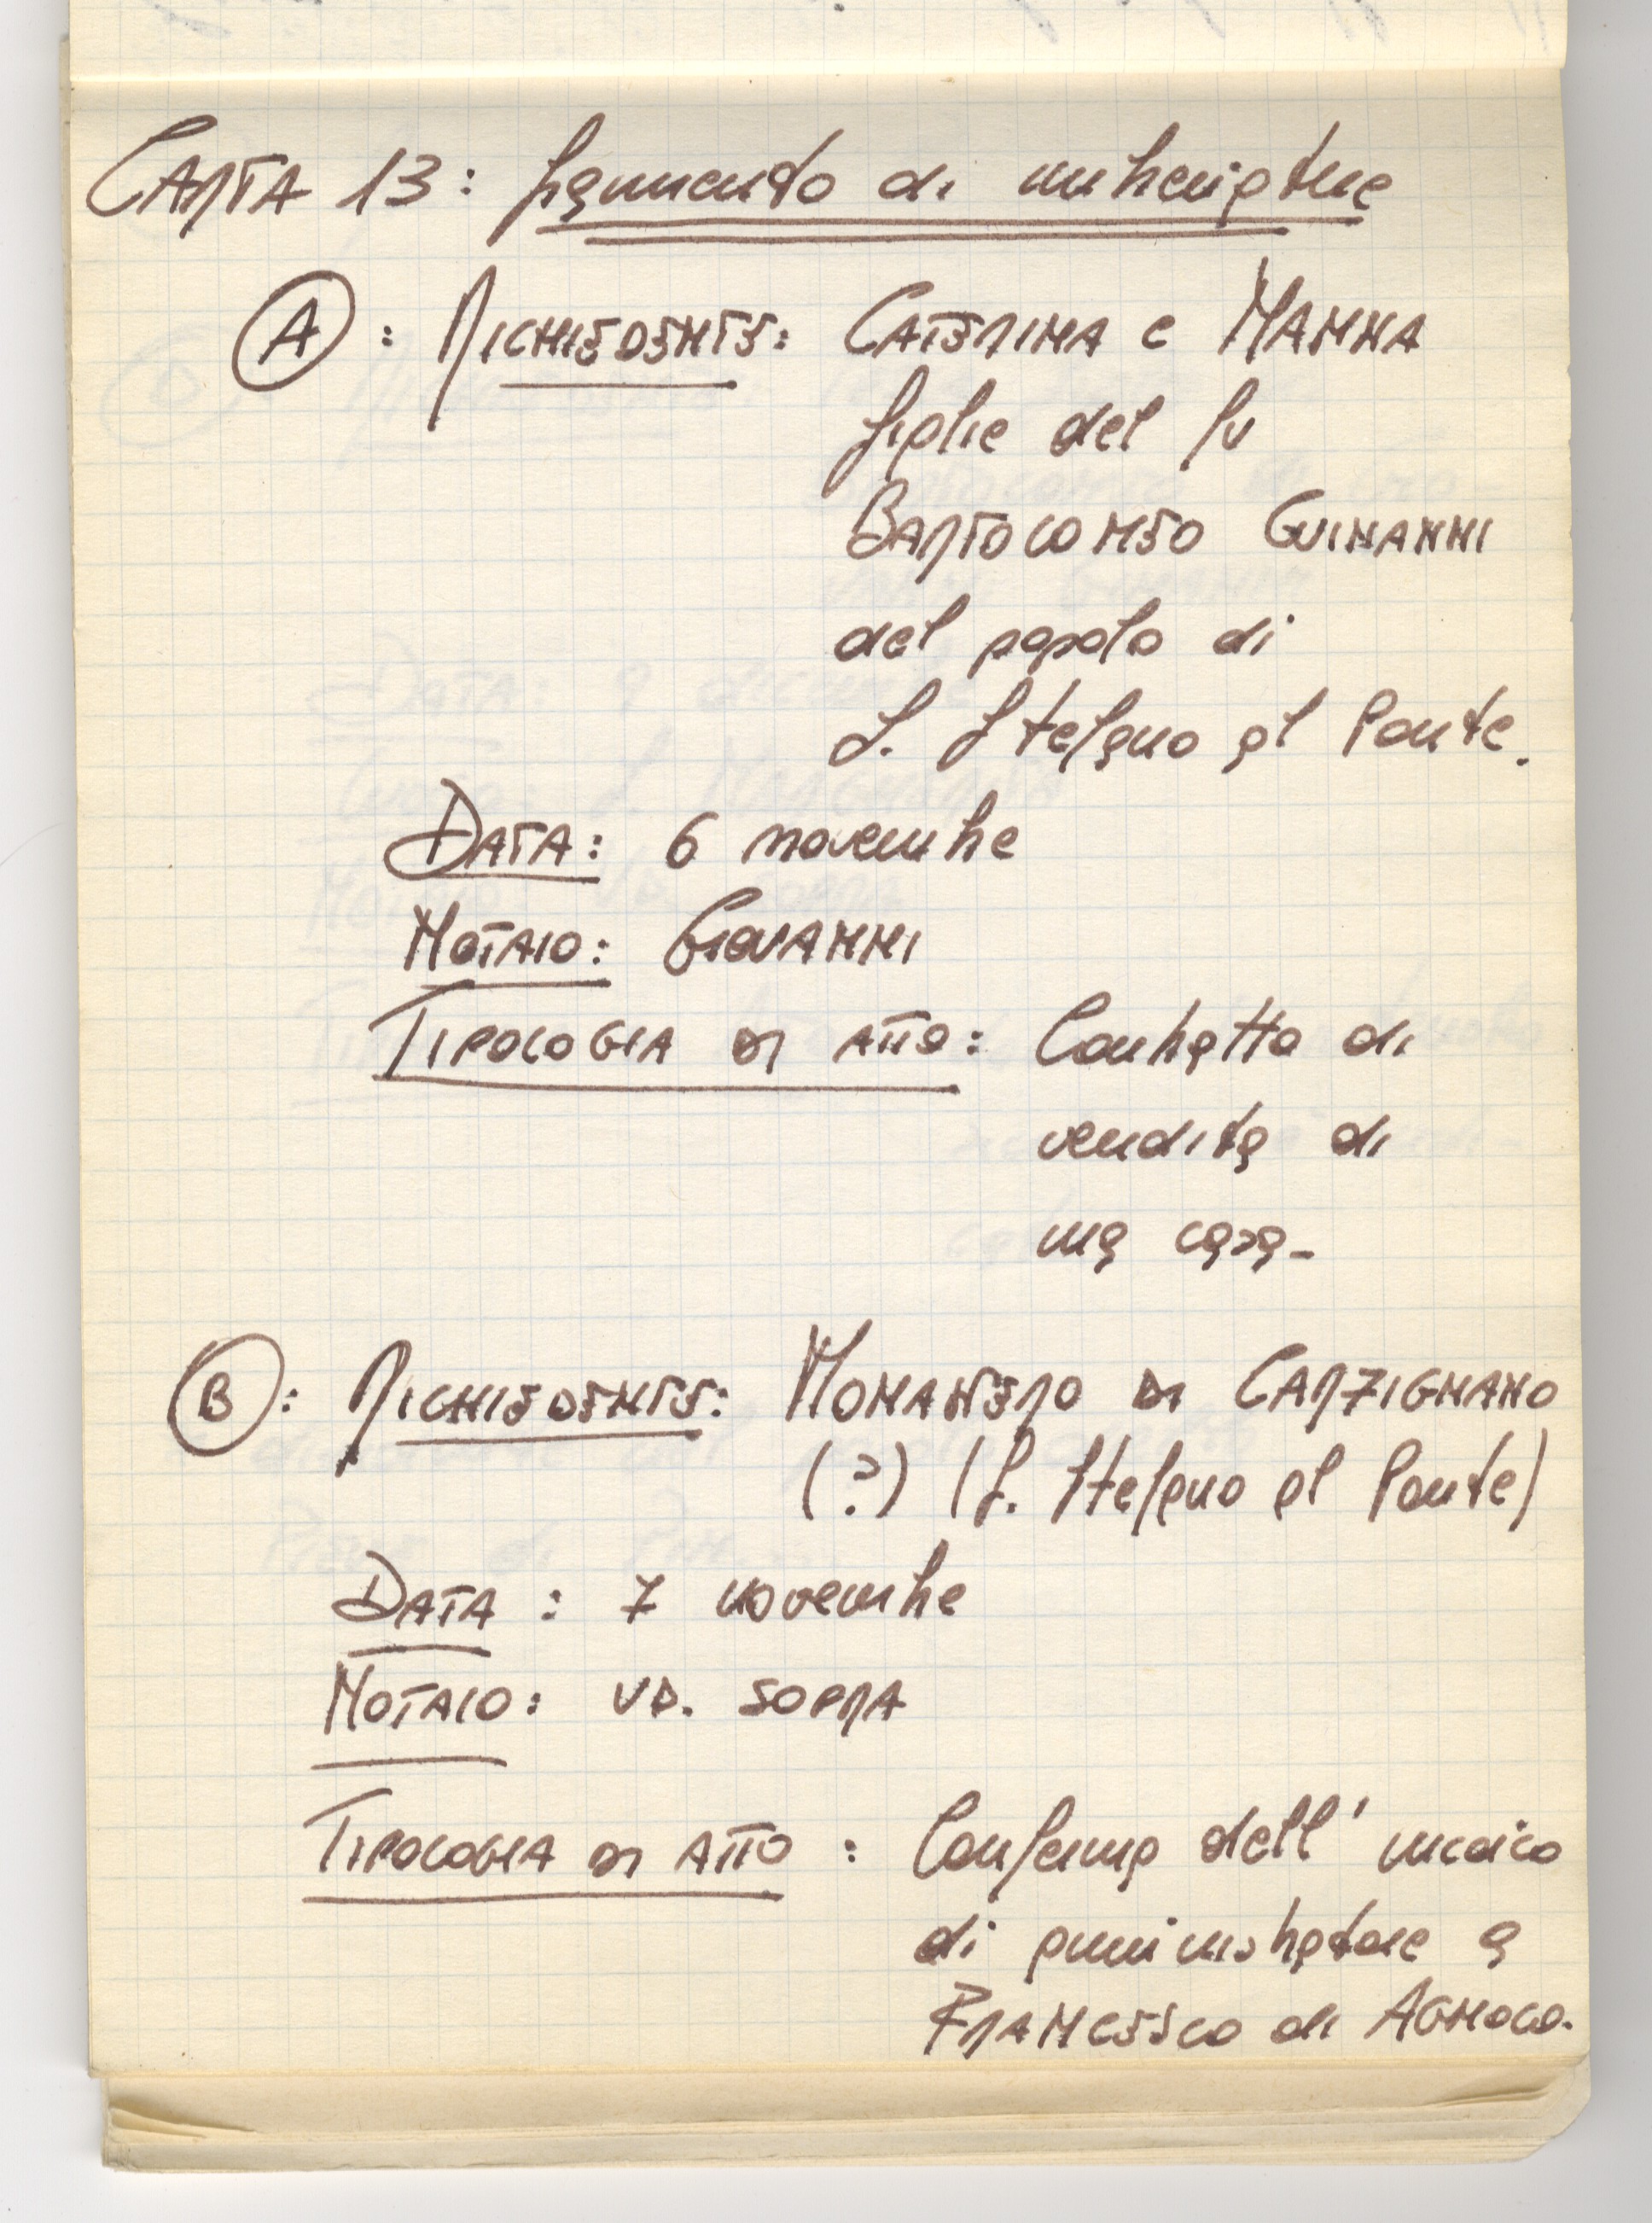 CARTA 13: frammento di imbreviature
A: RICHIEDENTE: CATERINA e NANNA
figlie del fu
BARTOLOMEO GUINANNI
del popolo di
S. Stefano al Ponte.
DATA: 6 novembre
NOTAIO: GIOVANNI
TIPOLOGIA DI ATTO: Contratto di
vendita di
una casa-
B: RICHIEDENTE: MONASTERO DI CARZIGNANO
(?) (S. Stefano al Ponte)
DATA: 7 novembre
NOTAIO: VD. SOPRA
TIPOLOGIA DI ATTO: Conferma dell'incarico
di amministratore a
FRANCESCO di AGNOLO.